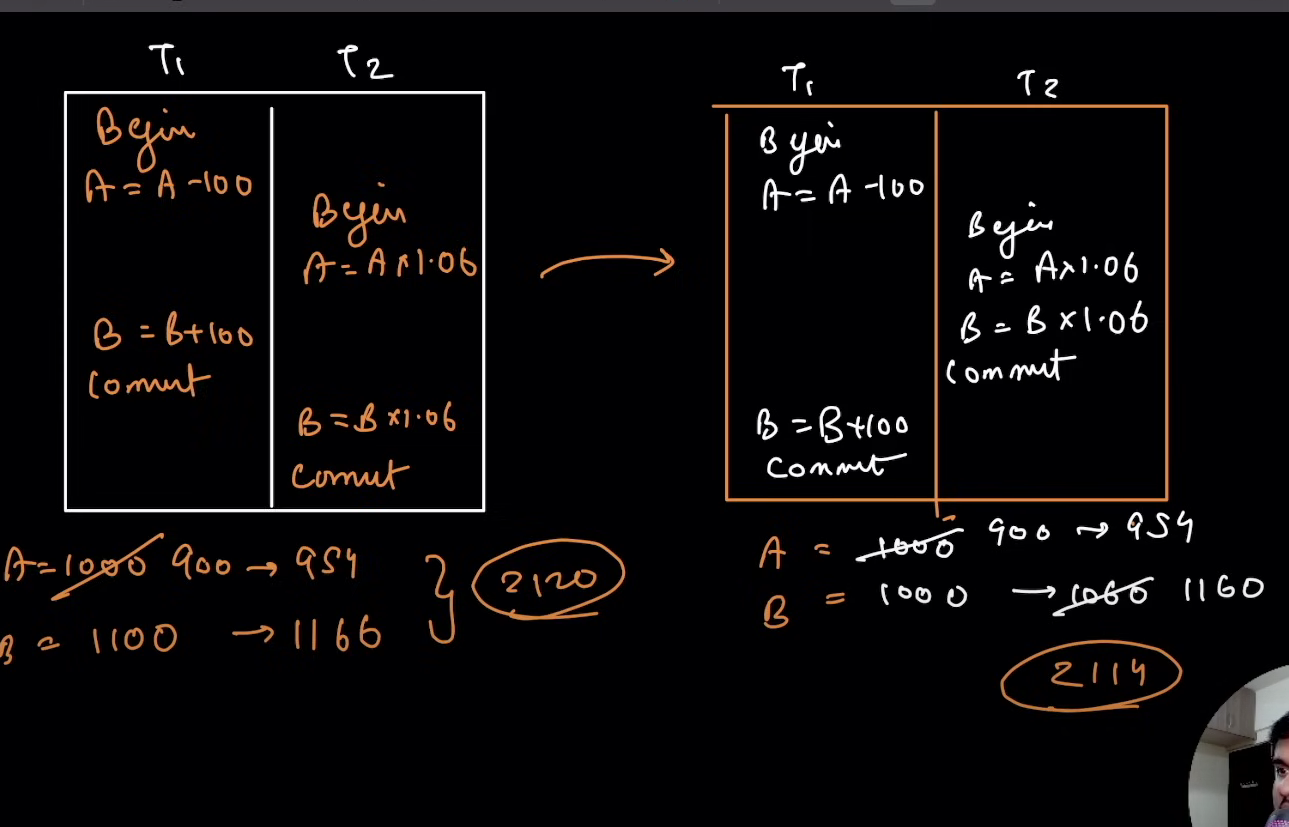 T1 T2
Begin
A = A - 100
Begin
A = A × 1.06
B = B + 100
Commit
B = B × 1.06
Commit
A = 1000 900 → 954
B = 1100 → 1166
2120
T1 T2
Begin
A = A - 100
Begin
A = A × 1.06
B = B × 1.06
Commit
B = B + 100
Commit
A = 1000 900 → 954
B = 1000 → 1060 1160
2114